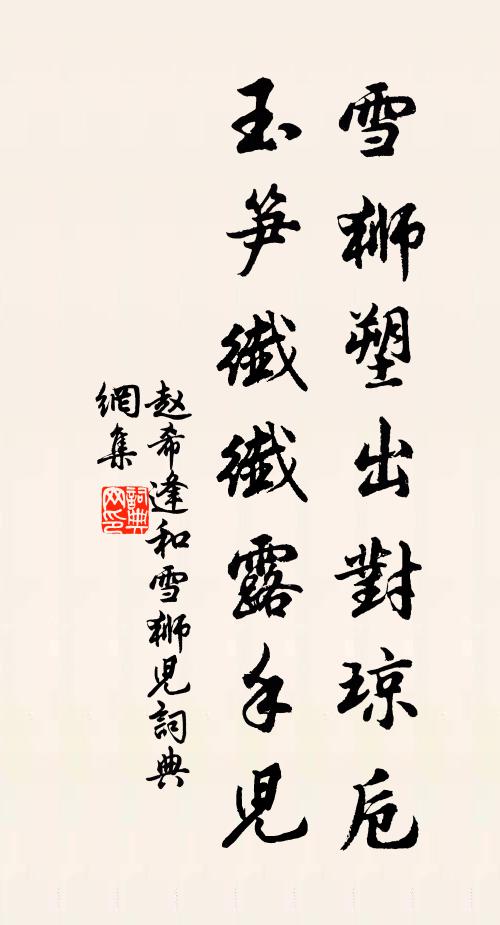 雪獅塑出對琼卮
玉笋纖纖露手兒
赵希逢和雪獅兒詞典
網集
詞典
网印